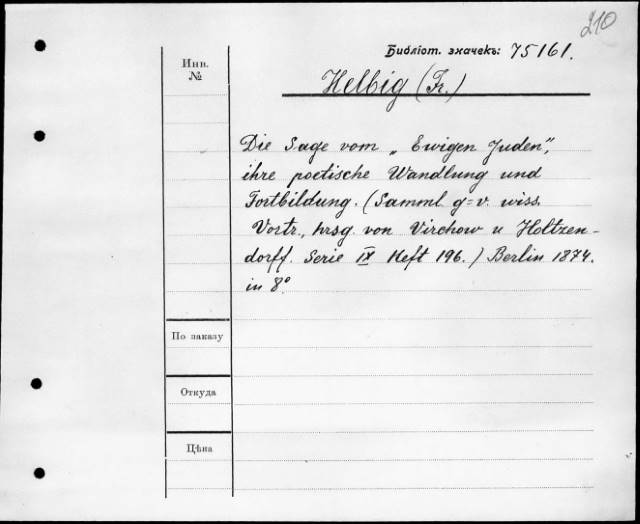 210
Библіот. значекъ: 75161.
Инв.
№
Helbig (Fr.)
Die Sage vom „Ewigen Juden",
ihre poetische Wandlung und
Fortbildung. (Samml g=v. wiss.
Vortr., hrsg. von Virchow u Holtzen-
dorff. Serie IX Heft 196.) Berlin 1874.
in 8°
По заказу
Откуда
Цѣна